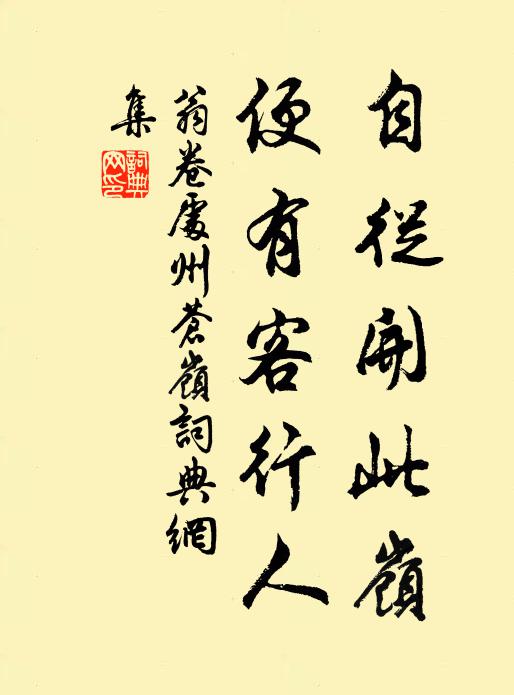 自從開此嶺
便有客行人
翁卷處州蒼嶺詞典網
集
詞典网印